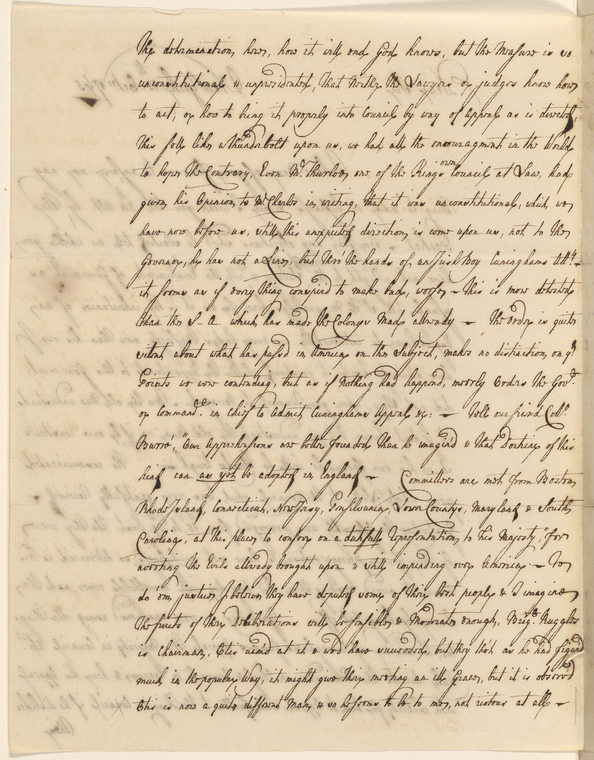 The determination, how, how it will end God knows, but the Measure is so
unconstitutional & unpresidented, that Neither the Lawyers or judges know how
to act, or how to bring it properly into Council by way of Appeal as is directed,
this fell like a thunderbolt upon us, we had all the encouragment in the World
to hope the Contrary, Even Mr. Thurlow one of the Kings own Council at Law, had
given his Opinion to Mr Charles in writing, that it was unconstitutional, which we
have now before us, while this unexpected direction is come upon us, not to the
Governor, he has not a Line, but thro' the hands of an Irish Boy Cuninghams Atty. -
it seems as if every thing conspird to make bad, worse, - This is more detested
than the S-- A which has made the Colonys Mad allready - The Order is quite
silent about what has passd in America on this Subject, makes no distinction, on ye.
Points we were contending, but as if Nothing had happend, meerly Orders the Govr.
or Command.r in Chief to Admit Cuninghams Appeal &c: - Tell our friend Coll.
Barre', "Our Apprehensions are better founded than he imagin'd & that Doctrines of this
kind can as yet be adopted in England - Committees are met from Boston,
Rhode Island, Connecticut, New Jersy, Pensilvania, Lower Countys, Maryland & South
Carolina, at this place to convey on a dutifull Representation to his Majesty, for
averting the Evils allready brought upon & still impending over America - To
do 'em justice I believe they have deputed some of their best people & I imagine
The fruits of their Deliberations will be sensible & Moderate enough, Brigr. Ruggles
is Chairman, Otis aimd at it & wd have succeeded, but they tho't as he had figurd
much in the popular Way, it might give their meeting an ill Grace, but it is observd
Otis is now a quite different Man, & so he seems to be to me, not riotous at all -